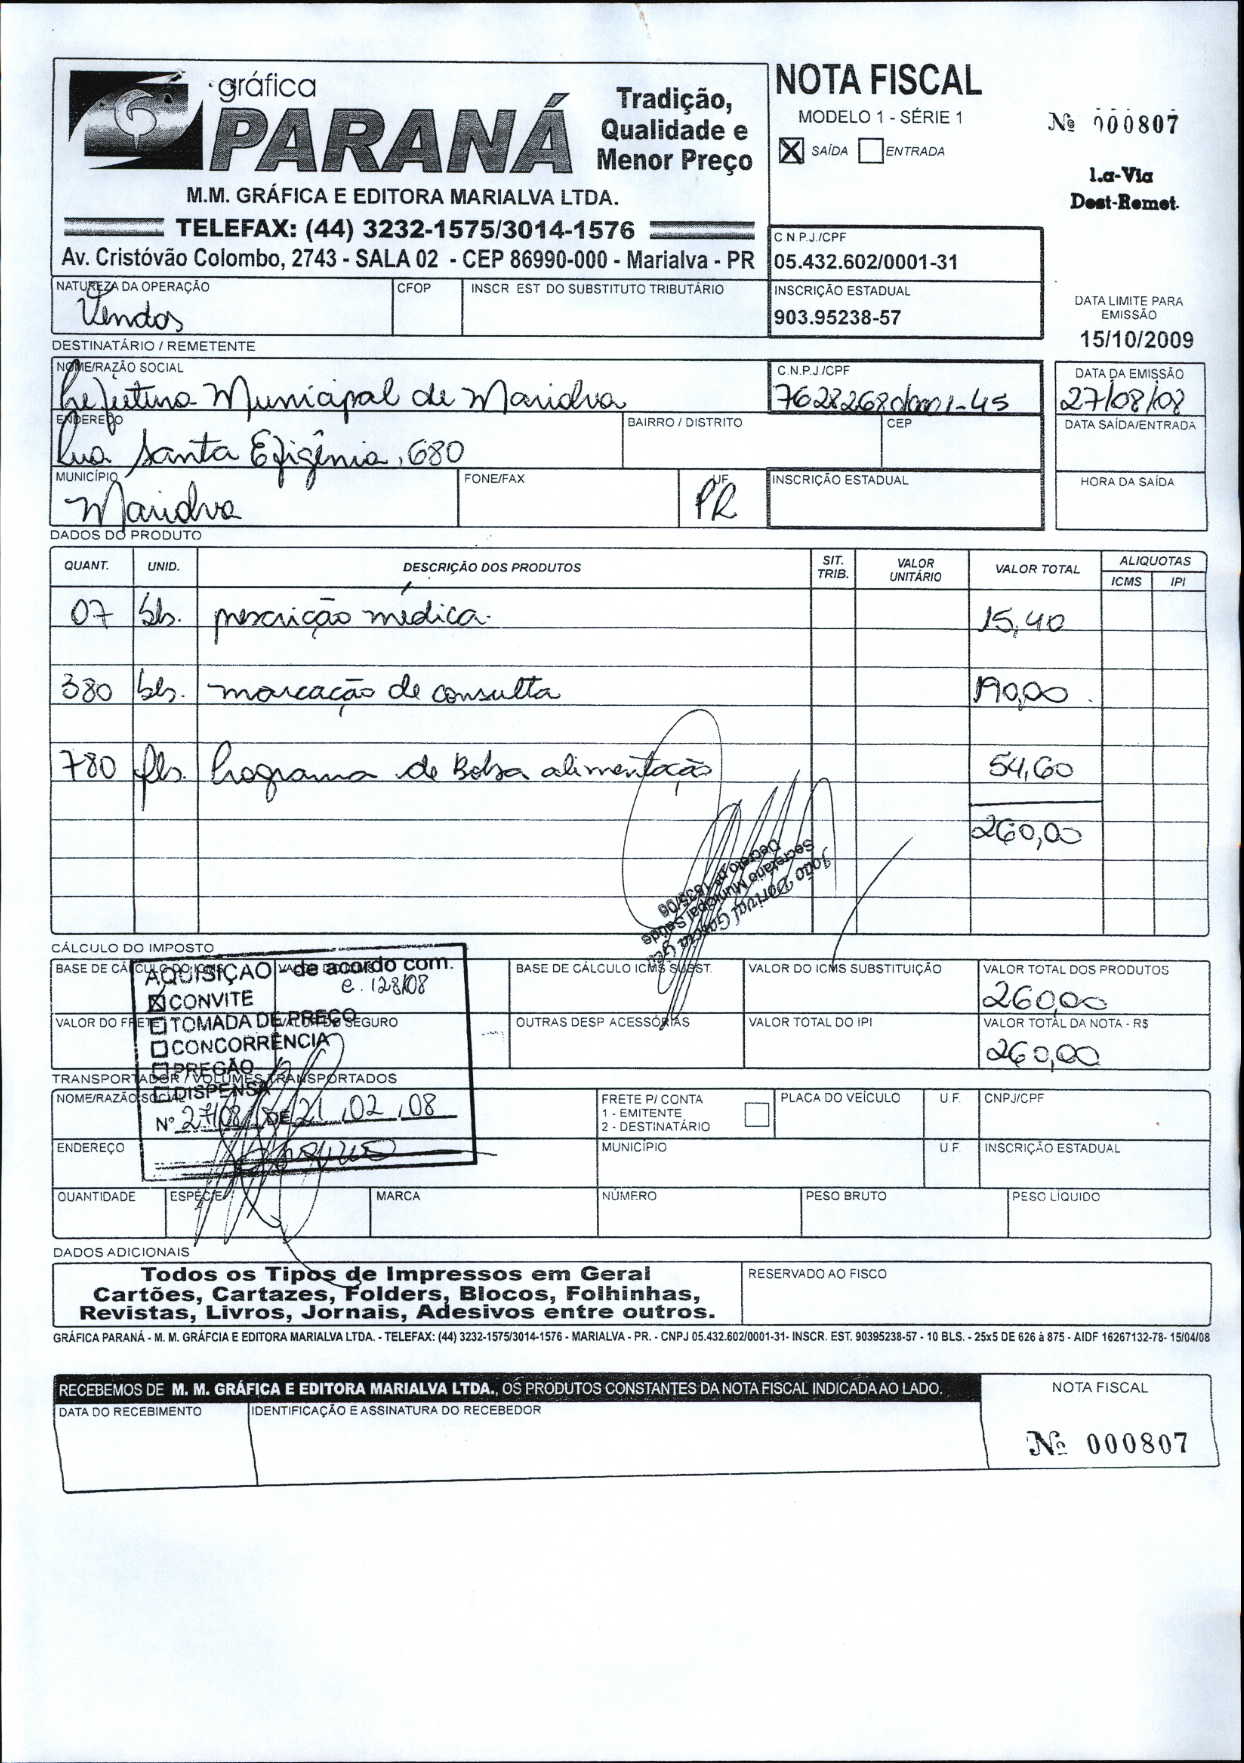 gráfica
PARANÁ
Tradição,
Qualidade e
Menor Preço
M.M. GRÁFICA E EDITORA MARIALVA LTDA.
TELEFAX: (44) 3232-1575/3014-1576
Av. Cristóvão Colombo, 2743 - SALA 02 - CEP 86990-000 - Marialva - PR
NOTA FISCAL
MODELO 1 - SÉRIE 1
X SAÍDA ENTRADA
Nº 000807
1.a-Via
Dest-Remet.
C.N.P.J./CPF
05.432.602/0001-31
NATUREZA DA OPERAÇÃO CFOP INSCR EST DO SUBSTITUTO TRIBUTÁRIO INSCRIÇÃO ESTADUAL
Vendas
903.95238-57
DATA LIMITE PARA
EMISSÃO
15/10/2009
DESTINATÁRIO / REMETENTE
NOME/RAZÃO SOCIAL C.N.P.J./CPF DATA DA EMISSÃO
Prefeitura Municipal de Marialva 76282680/0001-45 27/08/08
ENDEREÇO BAIRRO / DISTRITO CEP DATA SAÍDA/ENTRADA
Rua Santa Efigênia, 680
MUNICÍPIO FONE/FAX UF INSCRIÇÃO ESTADUAL HORA DA SAÍDA
Marialva PR
DADOS DO PRODUTO
QUANT. UNID. DESCRIÇÃO DOS PRODUTOS SIT. TRIB. VALOR UNITÁRIO VALOR TOTAL ALIQUOTAS
ICMS IPI
07 bls. prescrição médica. 15,40
380 bls. marcação de consulta 190,00
780 fls. Programa de Bolsa alimentação 54,60
260,00
João Dorival
Secretário Municipal Saúde
Decreto nº 1835/06
CÁLCULO DO IMPOSTO
BASE DE CÁLCULO DO ICMS BASE DE CÁLCULO ICMS SUBST. VALOR DO ICMS SUBSTITUIÇÃO VALOR TOTAL DOS PRODUTOS
260,00
VALOR DO FRETE VALOR DO SEGURO OUTRAS DESP ACESSÓRIAS VALOR TOTAL DO IPI VALOR TOTAL DA NOTA - R$
260,00
AQUISIÇÃO de acordo com.
c. 128/08
X CONVITE
TOMADA DE PREÇO
CONCORRÊNCIA
PREGÃO
DISPENSA
Nº 27/08/8 DE 21,02,08
TRANSPORTADOR / VOLUMES TRANSPORTADOS
NOME/RAZÃO SOCIAL FRETE P/ CONTA PLACA DO VEÍCULO U.F. CNPJ/CPF
1 - EMITENTE
2 - DESTINATÁRIO
ENDEREÇO MUNICÍPIO U.F. INSCRIÇÃO ESTADUAL
QUANTIDADE ESPÉCIE MARCA NÚMERO PESO BRUTO PESO LÍQUIDO
DADOS ADICIONAIS
Todos os Tipos de Impressos em Geral
Cartões, Cartazes, Folders, Blocos, Folhinhas,
Revistas, Livros, Jornais, Adesivos entre outros.
RESERVADO AO FISCO
GRÁFICA PARANÁ - M. M. GRÁFCIA E EDITORA MARIALVA LTDA. - TELEFAX: (44) 3232-1575/3014-1576 - MARIALVA - PR. - CNPJ 05.432.602/0001-31- INSCR. EST. 90395238-57 - 10 BLS. - 25x5 DE 626 à 875 - AIDF 16267132-78- 15/04/08
RECEBEMOS DE M. M. GRÁFICA E EDITORA MARIALVA LTDA., OS PRODUTOS CONSTANTES DA NOTA FISCAL INDICADA AO LADO.
NOTA FISCAL
DATA DO RECEBIMENTO IDENTIFICAÇÃO E ASSINATURA DO RECEBEDOR
Nº 000807